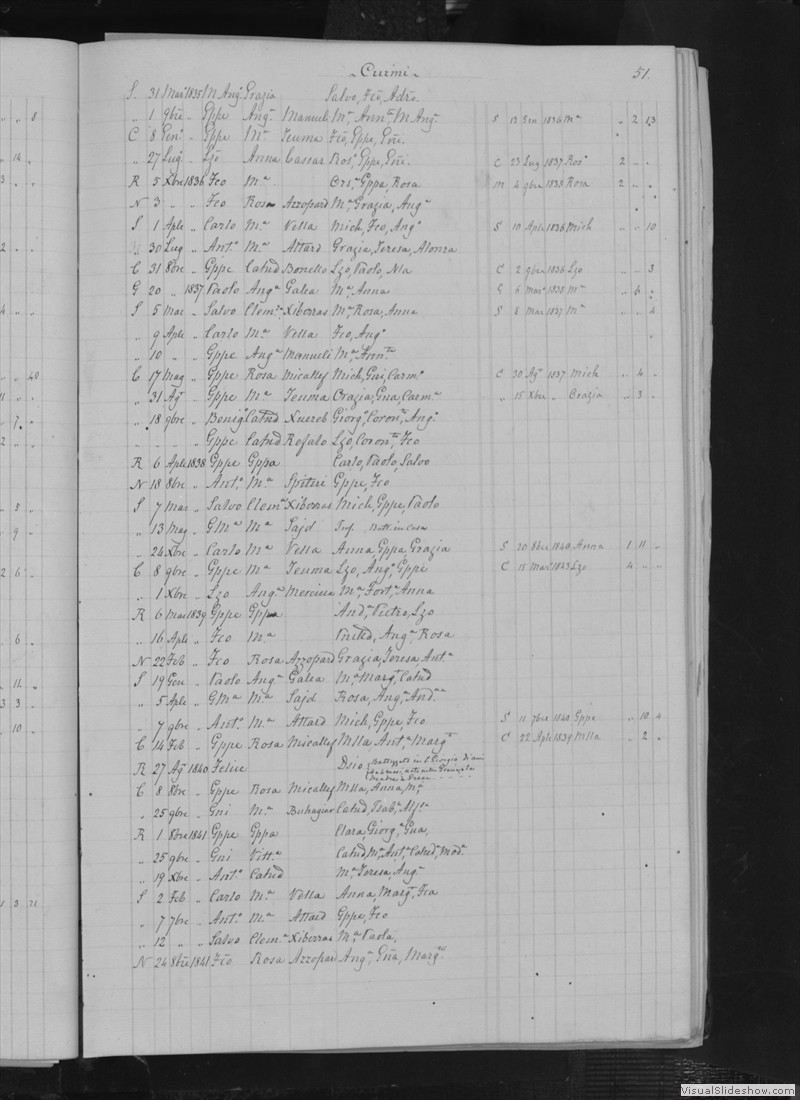 ~ Cuimi ~ 51.
S. 31 Mar 1835 M Angª Grazia Salvo, Fco, Adre
" 1 9bre " Gppe Angª Manueli Mª, Annª, M Angª S 13 1836 Mª " 2 13
C 8 Genº " Gppe Mª Teuma Fco, Gppe,
" 27 Lugº " Lzo Anna Cassar Rosª, Gppe, C 23 Lug 1837 Rosª 2 " "
R 5 Xbre 1836 Fco Mª Orsª, Gppa, Rosa M 4 9bre 1838 Rosa 2 " "
N 3 " " Fco Rosa Azzopard Mª, Grazia, Angª
S 1 Aple " Carlo Mª Vella Mich, Fco, Angª S 10 Aple 1836 Mich " " 10
30 Lug " Antº Mª Attard Grazia, Teresa, Alonza
C 31 8bre " Gppe Catnd Bonello Lzo, Paolo, Nla C 2 9bre 1836 Lzo " " 3
G 20 " 1837 Paolo Angª Galea Mª, Anna G 6 Marº 1838 Mª " 6 "
S 5 Mar " Salvo Clemª Xiborras Mª, Rosa, Anna S 8 Mar 1837 Mª " " 4
" 9 Aple " Carlo Mª Vella Fco, Angª
" 10 " " Gppe Angª Manueli Mª, Annª
C 17 Mag " Gppe Rosa Micallef Mich, Gni, Carmº C 30 Agº 1837 Mich " 4 "
" 31 Agº " Gppe Mª Teuma Grazia, Gna, Carmª " 15 Xbre " Grazia " 3 "
" 18 9bre " Benigº Catnd Xuereb Giorgª, Coronª, Angª
Gppe Catnd Refalo Lzo, Coronª, Fco
R 6 Aple 1838 Gppe Gppa Carlo, Paolo, Salvo
N 18 8bre " Antº Mª Spiteri Gppe, Fco
S 7 Mar " Salvo Clemª Xiborras Mich, Gppe, Paolo
" 13 Mag " GMª Mª Sajd Inf. Batt. in Casa
" 24 Xbre " Carlo Mª Vella Anna, Gppa, Grazia S 20 8bre 1840 Anna 1 11 "
C 8 9bre " Gppe Mª Teuma Lzo, Angº, Gppe C 15 Mar 1843 Lzo 4 " "
" 1 Xbre " Lzo Angª Mercieca Mª, Fortª, Anna
R 6 Mar 1839 Gppe Gppa Andª, Pietro, Lzo
" 16 Aple " Fco Mª Angª, Rosa
N 22 Feb " Fco Rosa Azzopard Grazia, Teresa, Antª
S 19 Gen " Paolo Angª Galea Mª, Margª, Catnd
" 5 Aple " GMª Mª Sajd Rosa, Angª, Andª
" 7 9bre " Antº Mª Attard Mich, Gppe, Fco S 11 7bre 1840 Gppe " 10 4
C 14 Feb " Gppe Rosa Micallef Mlla, Antª, Margª C 22 Aple 1839 Mlla " 2 "
R 27 Agº 1840 Felice Dsio Battezzato in S. Giorgio
C 8 8bre " Gppe Rosa Micallef Mlla, Anna, Mª
" 25 9bre " Gni Mª Buhagiar Catnd, Isabª, Alfª
R 1 8bre 1841 Gppe Gppa Clara, Giorgª, Gna,
" 25 9bre " Gni Vittª Catnd, Mª, Antª, Catnd, Madª
" 19 Xbre " Antº Catnd Mª, Teresa, Angª
S 2 Feb " Carlo Mª Vella Anna, Margª, Fca
" 7 7bre " Antº Mª Attard Gppe, Fco
" 12 " " Salvo Clemª Xiborras Mª, Paola,
N 24 8bre 1841 Fco Rosa Azzopar Angª, Gna, Margª
VisualSlideshow.com